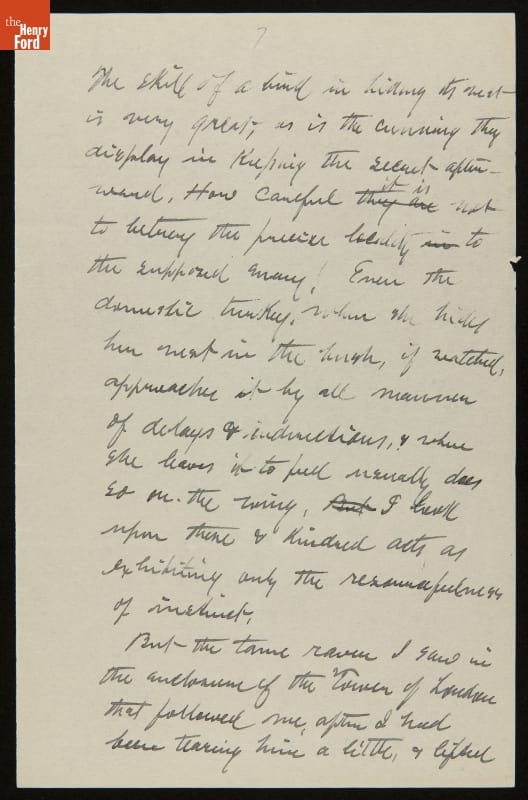 the
Henry
Ford
7
The skill of a bird in hiding its nest
is very great, as is the cunning they
display in keeping the secret after-
ward. How careful they are it is not
to betray the precise locality in to
the supposed enemy! Even the
domestic turkey, when she hides
her nest in the bush, if watched,
approaches it by all manner
of delays & indirections, & when
she leaves it to feed usually does
so on the wing. But I look
upon these & kindred acts as
exhibiting only the resourcefulness
of instinct.
But the tame raven I saw in
the enclosure of the Tower of London
that followed me, after I had
been teasing him a little, & lifted